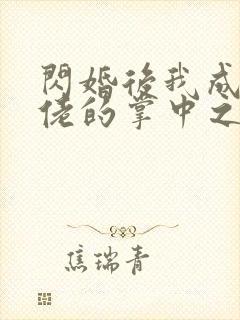 閃婚後我成
佬的掌中之
焦瑞青